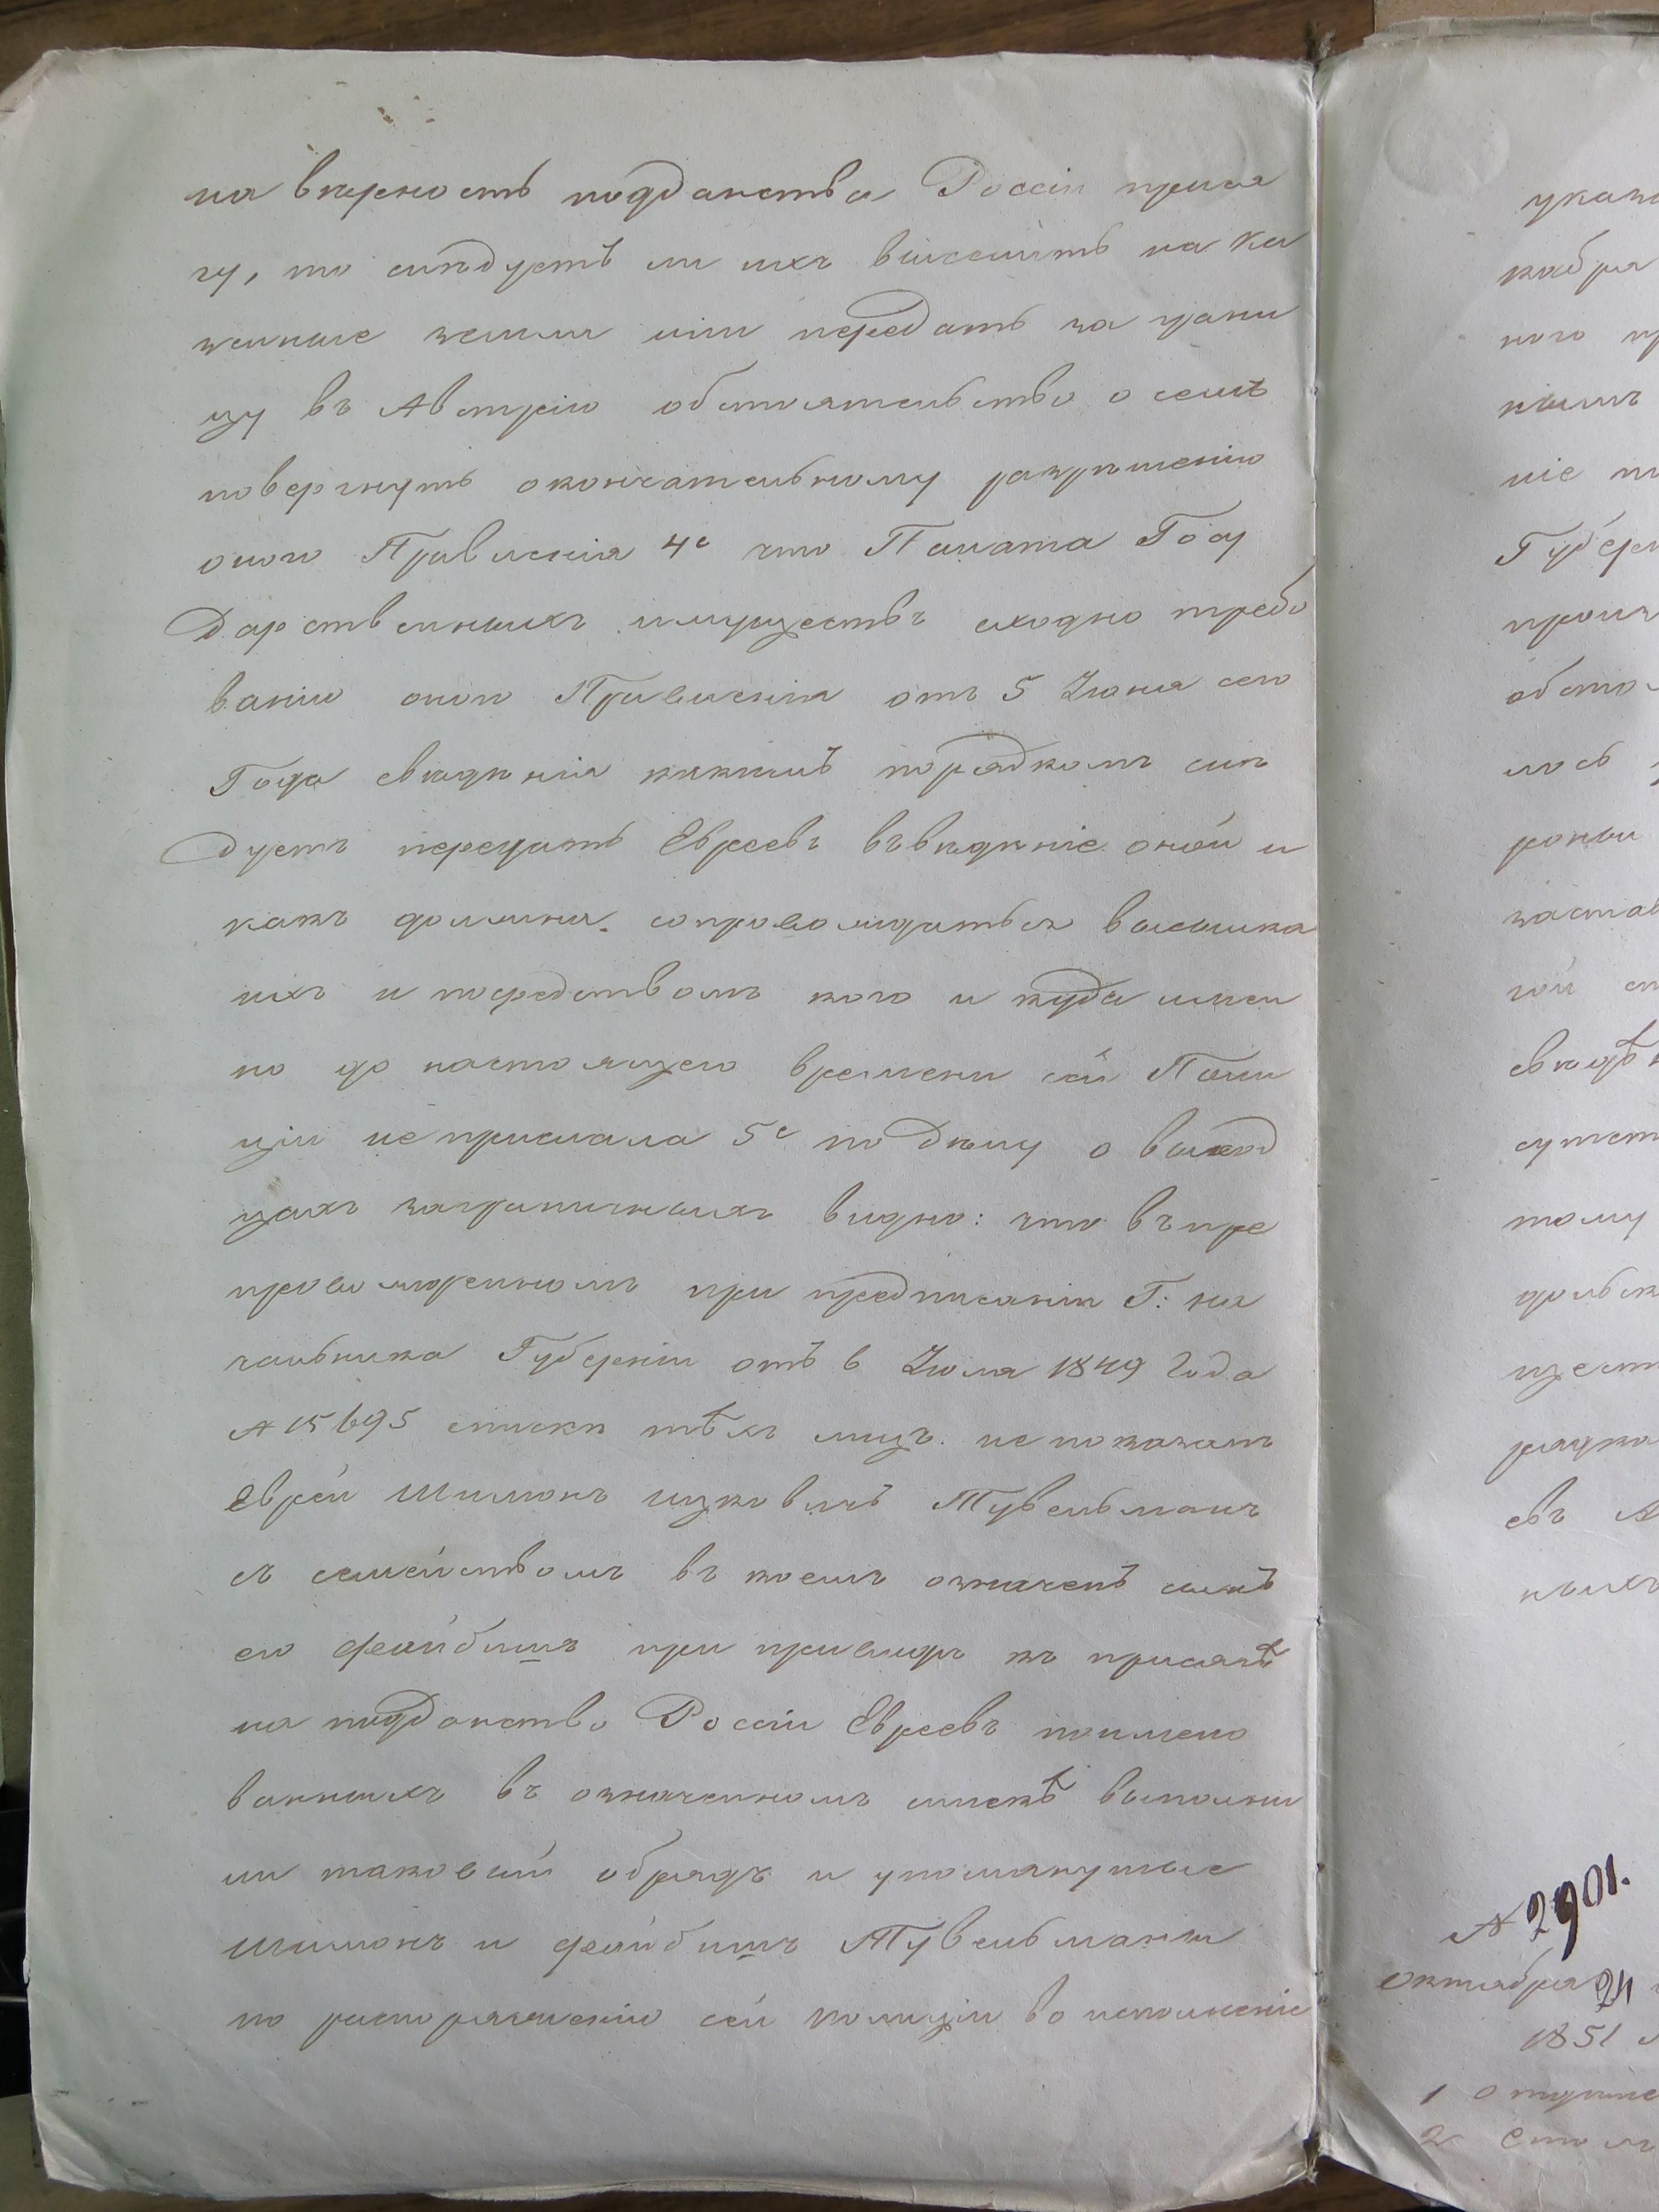 на вѣрность подданства Россіи прися
гу, то слѣдуетъ ли ихъ выселить на Ка
зенные земли или передать за грани
цу въ Австрію обстоятельство о семъ
повергнуть окончательному разрѣшенію
оного Правленія 4е что Палата Госу
дарственныхъ имуществъ сходно требо
ванію оного Правленія отъ 5 Іюня сего
Года свѣдѣнія какимъ порядкомъ слѣ
дуетъ передать Евреевъ въ вѣдѣніе оной и
какъ должна сопровождаться высылка
ихъ и посредствомъ кого и куда имен
но до настоящего времени сей Поли
ціи не прислала 5е по дѣлу о выход
цахъ заграничныхъ видно: что въ пре
провожденномъ при предписаніи Г: на
чальника Губерніи отъ 6 Іюля 1849 Года
№ 15695 списки тѣхъ лицъ не показанъ
Еврей Шимонъ Ицковичъ Тувельманъ
съ семействомъ въ коемъ означенъ сынъ
его Фейбишъ при приводѣ къ присягѣ
на подданство Россіи Евреевъ поимено
ванныхъ въ означенномъ спискѣ выполни
ли таковый обрядъ и упомянутые
Шимонъ и Фейбишъ Тувельманы
по распоряженію сей полиціи во исполненіе
указа
кабря
ного пр
нымъ
ніе
Губерн
обсто
лось
застав
гой
свѣдѣн
тому
щест
рядка
евъ
ныхъ
№ 2901.
Октября 24
1851
1
2 Стол